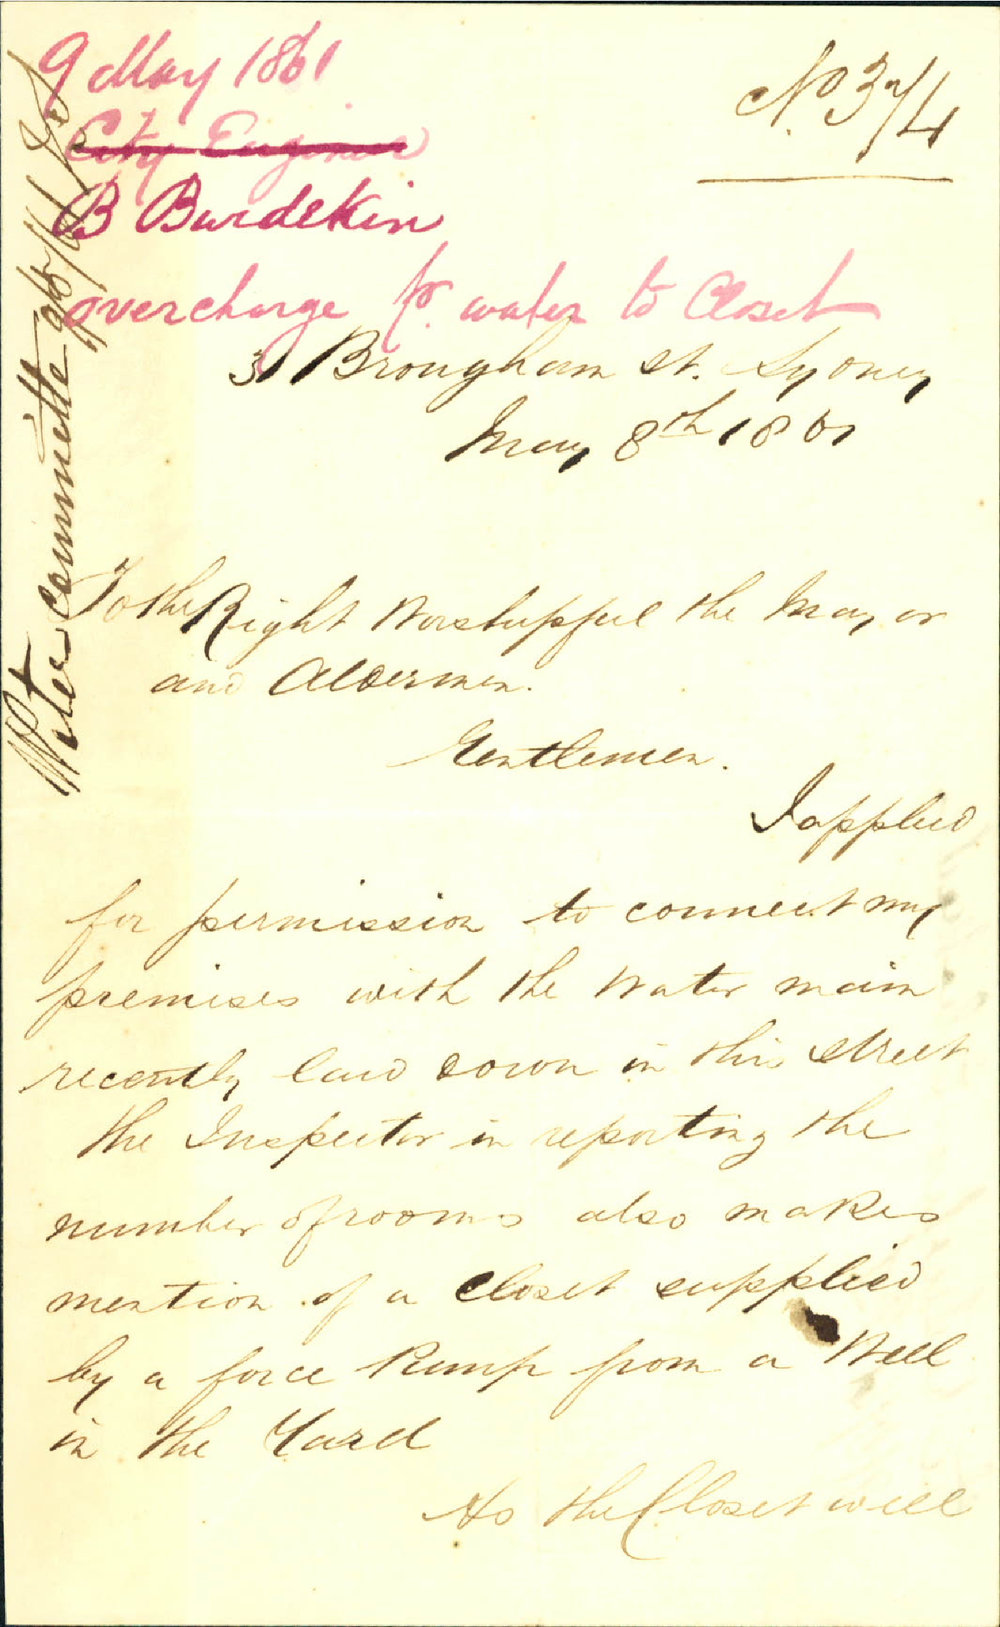 9 May 1861
No 374
City Engineer
B Burdekin
overcharge for water to Closet
31 Brougham St. Sydney
May 8th 1861
Water Committee
To the Right Worshipful the Mayor
and Aldermen.
Gentlemen.
I applied
for permission to connect my
premises with the Water main
recently laid down in this street
the Inspector in reporting the
number of rooms also makes
mention of a Closet supplied
by a force Pump from a Well
in the Yard
As the Closet well